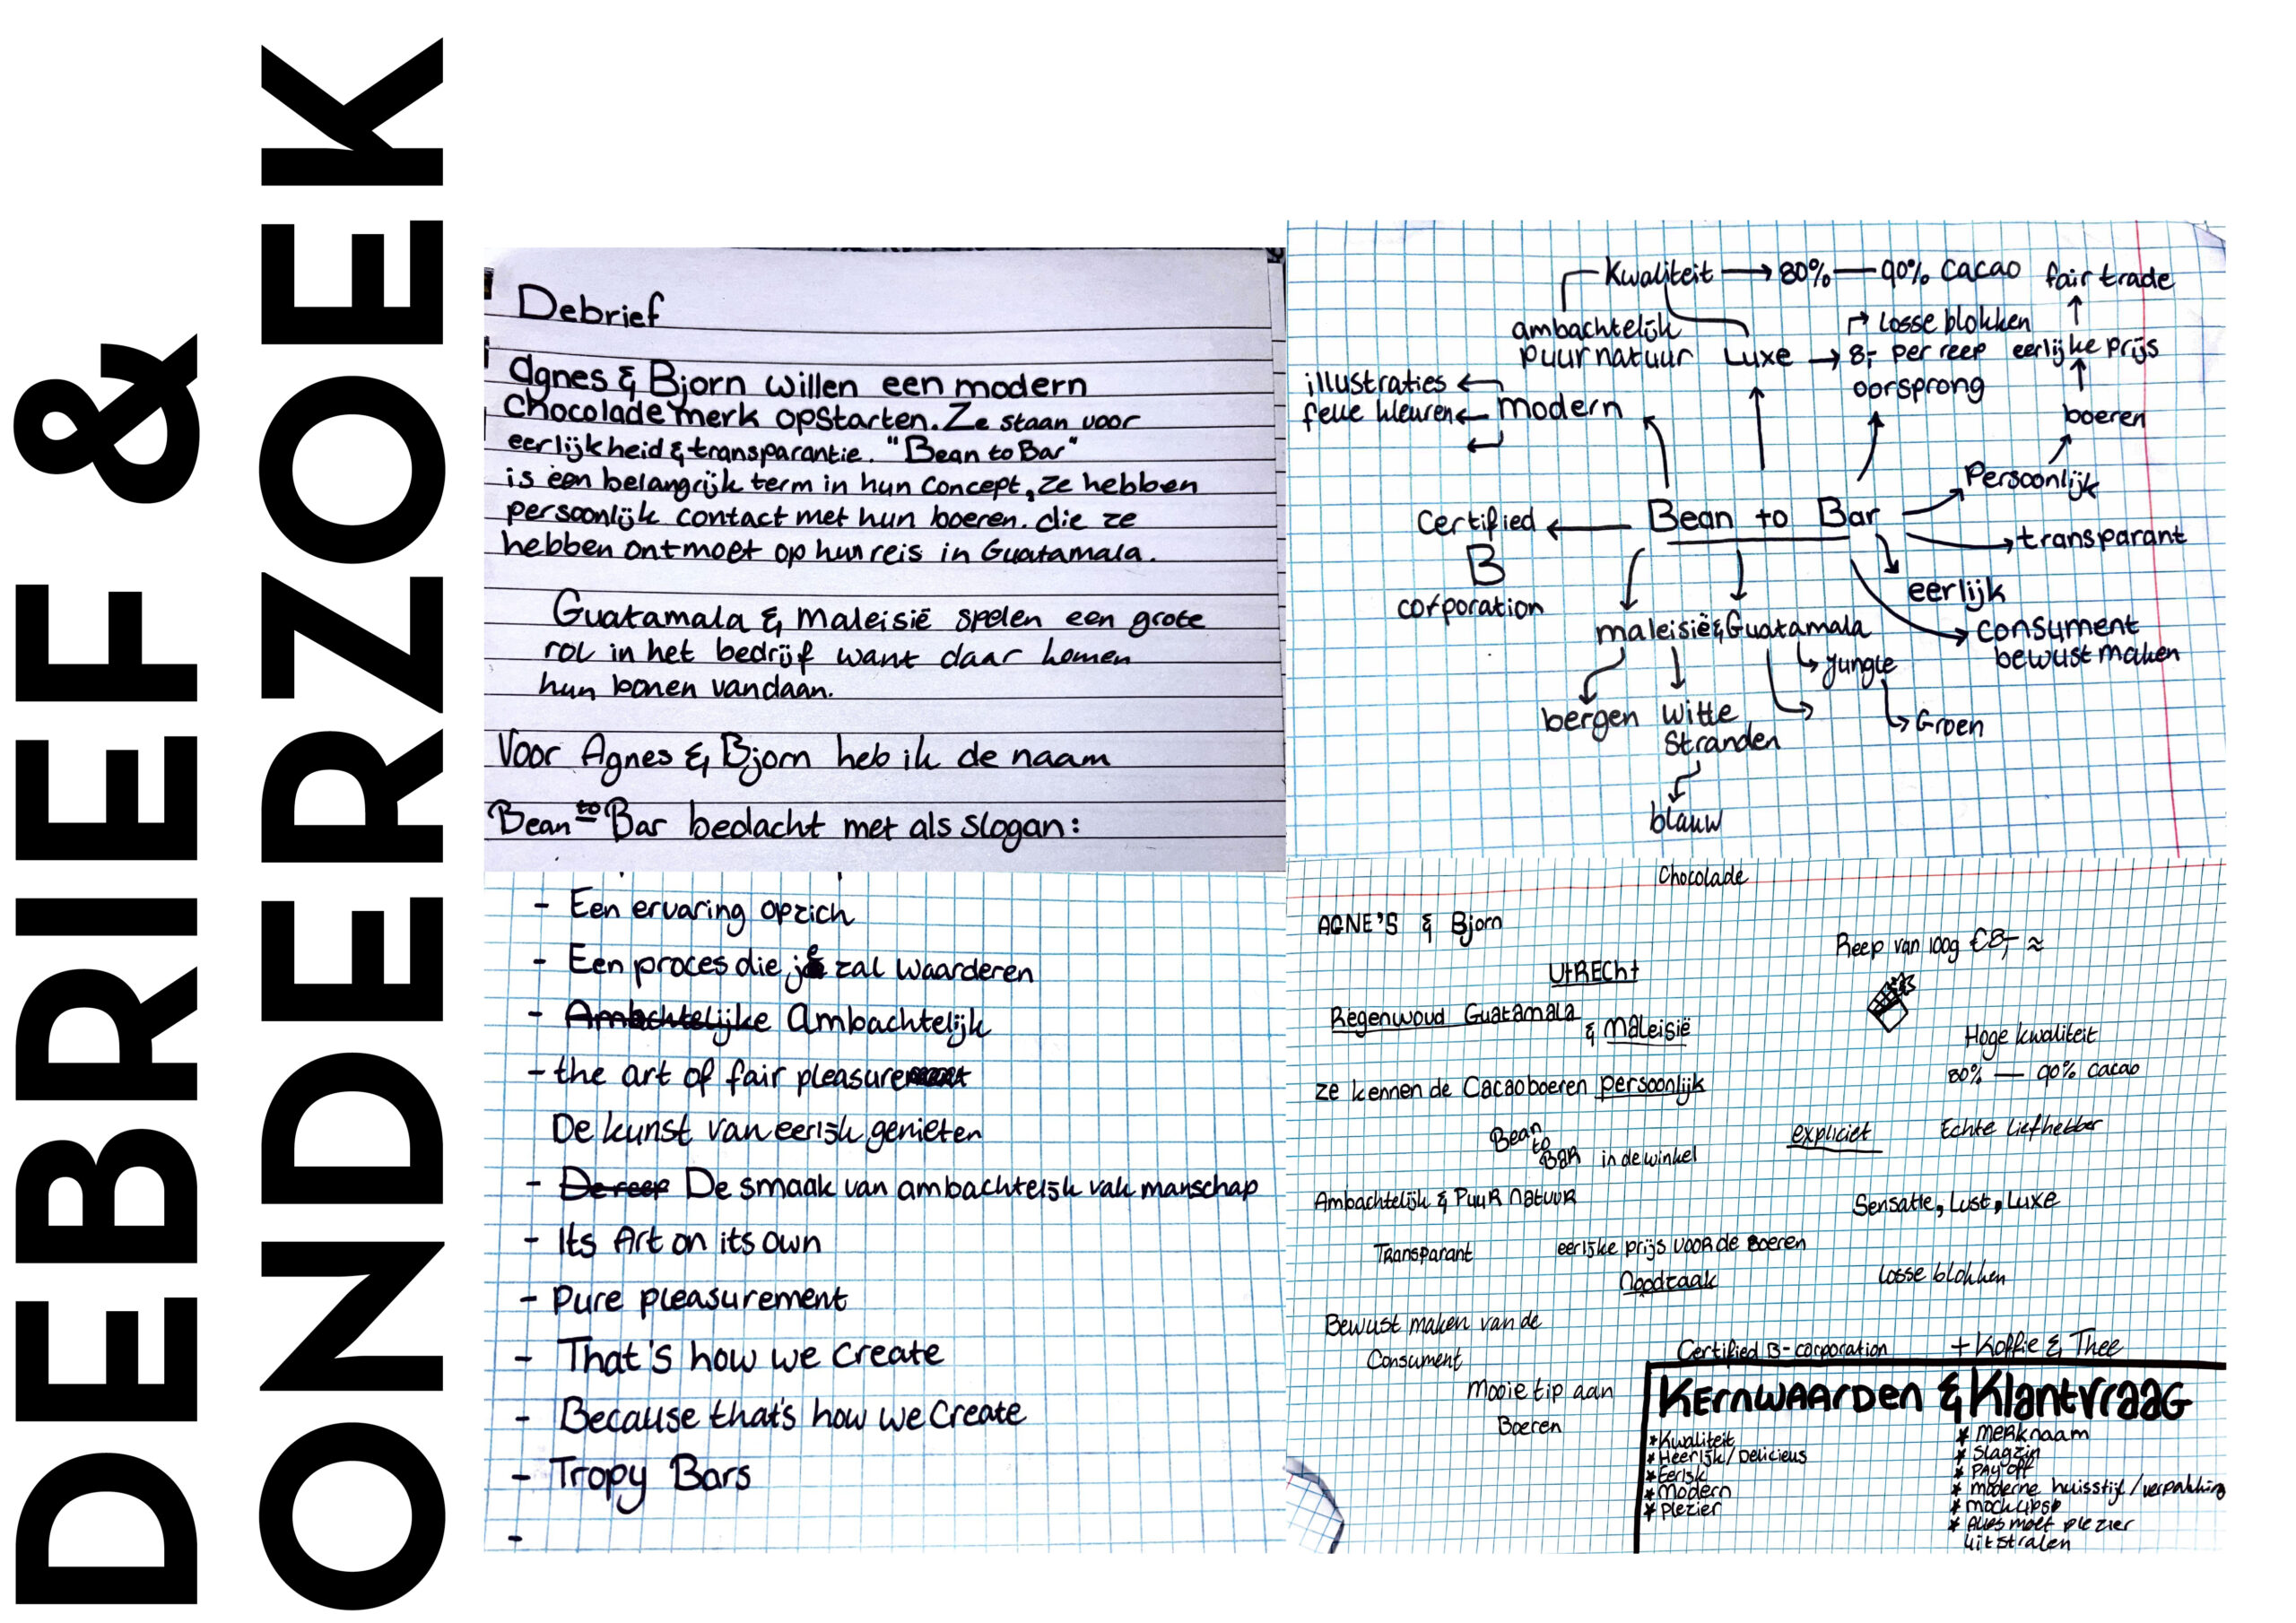 DEBRIEF &
ONDERZOEK
Debrief
Agnes & Bjorn willen een modern
chocolade merk opstarten. Ze staan voor
eerlijkheid & transparantie. "Bean to Bar"
is een belangrijk term in hun concept, ze hebben
persoonlijk contact met hun boeren. die ze
hebben ontmoet op hun reis in Guatamala.
Guatamala & Maleisië spelen een grote
rol in het bedrijf want daar komen
hun bonen vandaan.
Voor Agnes & Bjorn heb ik de naam
Bean to Bar bedacht met als slogan:
- Een ervaring opzich
- Een proces die je zal waarderen
- Ambachtelijke Ambachtelijk
- the art of fair pleasurement
De kunst van eerlijk genieten
- De reep De smaak van ambachtelijk vak manschap
- Its Art on its own
- Pure pleasurement
- That's how we create
- Because that's how we Create
- Tropy Bars
-
Kwaliteit → 80% — 90% cacao
fair trade
ambachtelijk
puur natuur
Losse blokken
Luxe → 8,- per reep
eerlijke prijs
oorsprong
illustraties
felle kleuren
modern
boeren
Persoonlijk
Certified
B
corporation
Bean to Bar
transparant
eerlijk
maleisië & Guatamala
consument
bewust maken
jungle
Groen
bergen
witte
stranden
blauw
Chocolade
AGNE'S & Bjorn
Reep van 100g €8,- ≈
UtRECht
Regenwoud Guatamala
& Maleisië
Hoge kwaliteit
80% — 90% cacao
ze kennen de Cacaoboeren persoonlijk
Bean
to
BAR in de winkel
expliciet
Echte liefhebber
Ambachtelijk & PuuR natuuR
Sensatie, Lust, Luxe
Transparant
eerlijke prijs voor de Boeren
Noodzaak
Losse blokken
Bewust maken van de
Consument
Certified B-corporation
+ Koffie & Thee
Mooie tip aan
Boeren
KERNWAARDEN & KlantvraaG
* Kwaliteit
* Heerlijk / Delicieus
* Eerlijk
* Modern
* Plezier
* merknaam
* Slagzin
* Pay off
* moderne huisstijl / verpakking
* mockups
* Alles moet plezier
uitstralen